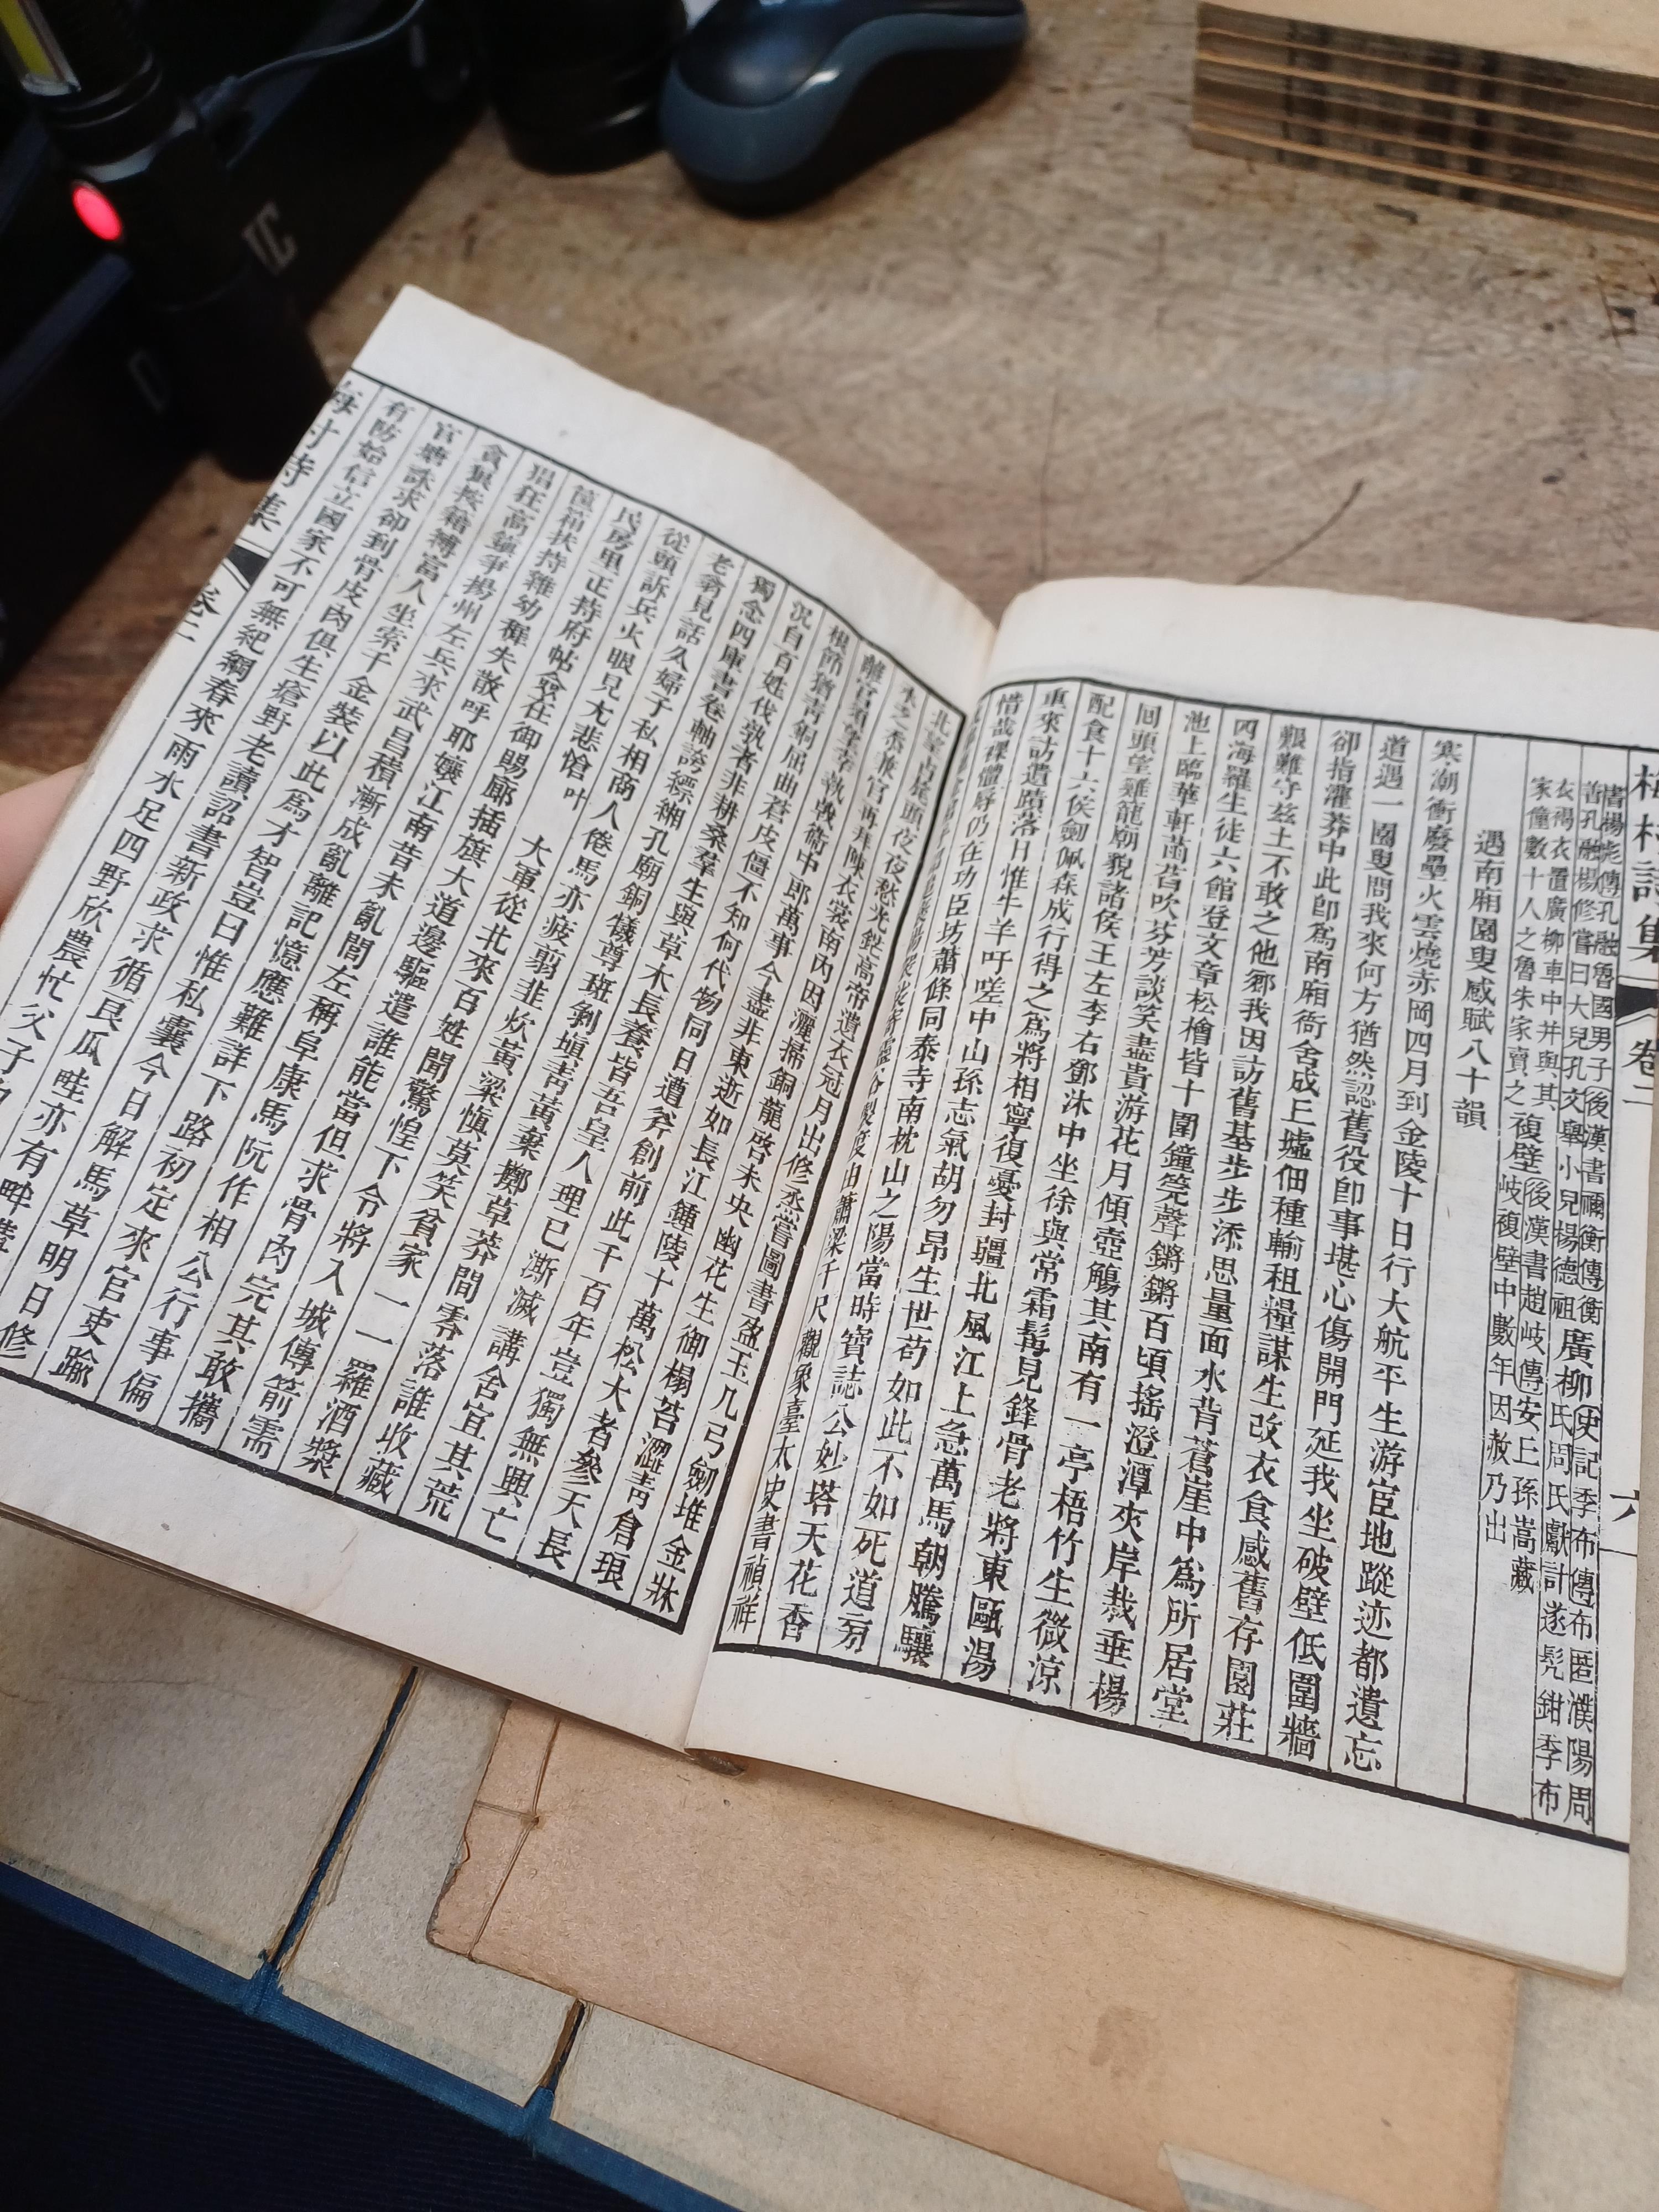 梅村詩集 卷二 六
書楊彪傳孔融魯國男子後漢書禰衡傳衡
善孔融楊修嘗曰大兒孔文舉小兒楊德祖
廣柳
史記季布傳布匿濮陽周
氏周氏獻計遂髡鉗季布
衣褐衣置廣柳車中并與其
家僮數十人之魯朱家賣之
複壁
後漢書趙岐傳安丘孫嵩藏
岐複壁中數年因赦乃出
遇南廂園叟感賦八十韻
寒潮衝廢壘火雲燒赤岡四月到金陵十日行大航平生游宦地蹤迹都遺忘
道遇一園叟問我來何方猶然認舊役卽事堪心傷開門延我坐破壁低圍牆
卻指灌莽中此卽爲南廂衙舍成丘墟佃種輸租糧謀生改衣食感舊存園莊
艱難守茲土不敢之他鄉我因訪舊基步步添思量面水背蒼崖中爲所居堂
四海羅生徒六館登文章松檜皆十圍鐘筦聲鏘鏘百頃搖澄潭夾岸栽垂楊
池上臨華軒菡萏吹芬芳談笑盡貴游花月傾壺觴其南有一亭梧竹生微涼
囘頭望雞籠廟貌諸侯王左李右鄧沐中坐徐與常霜髯見鋒骨老將東甌湯
配食十六侯劍佩森成行得之爲將相寧復憂封疆北風江上急萬馬朝騰驤
重來訪遺蹟落日惟牛羊吁嗟中山孫志氣胡勿昂生世苟如此不如死道旁
惜哉裸體辱仍在功臣坊蕭條同泰寺南枕山之陽當時寶誌公妙塔天花香
由蕭梁千尺觀象臺太史書禎祥
北望占旄頭夜夜愁光鋩高帝遺衣冠月出修烝嘗圖書盈玉几弓劍堆金牀
兼官再拜陳衣裳南內因灑掃銅龍啓未央幽花生御榻苔澀青倉琅
離宮須望幸執戟衛中郎萬事今盡非東逝如長江鍾陵十萬松大者參天長
根節猶靑銅屈曲蒼皮僵不知何代物同日遭斧創前此千百年豈獨無興亡
況自百姓伐孰者非耕桑羣生與草木長養皆吾皇人理已澌滅講舍宜其荒
獨念四庫書卷軸誇縹緗孔廟銅犧尊斑剝塡靑黃棄擲草莽間零落誰收藏
老翁見話久婦子私相商人倦馬亦疲剪韭炊黃粱愼莫笑貧家一一羅酒漿
從頭訴兵火眼見尤悲愴叶 大軍從北來百姓聞驚惶下令將入城傳箭需
民房里正持府帖僉在御賜廊插旗大道邊驅遣誰能當但求骨肉完其敢攜
筐箱扶持雜幼稺失散呼耶孃江南昔未亂閭左稱阜康馬阮作相公行事偏
猖狂高鎭爭揚州左兵來武昌積漸成亂離記憶應難詳下路初定來官吏踰
貪狼按籍縛富人坐索千金裝以此爲才智豈曰惟私囊今日解馬草明日修
官塘誅求卻到骨皮肉俱生瘡野老讀詔書新政求循良瓜畦亦有畔
有防始信立國家不可無紀綱春來雨水足四野欣農忙父子
梅村詩集 卷二